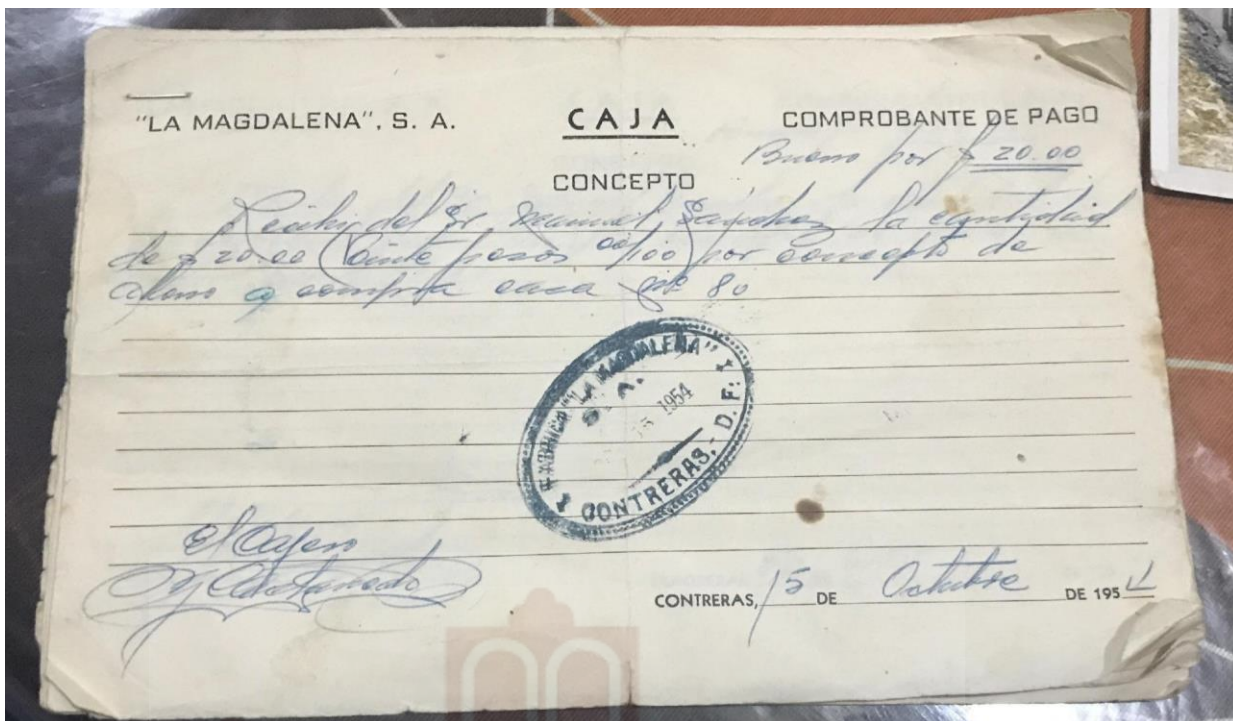 "LA MAGDALENA", S. A. CAJA COMPROBANTE DE PAGO
Bueno por $ 20.00
CONCEPTO
Recibi del Sr Manuel Sanchez la cantidad
de $ 20.00 (Veinte pesos 00/100) por concepto de
abono a compra casa Nº 80
FABRICA "LA MAGDALENA"
S. A.
15 1954
CONTRERAS,- D. F.
El Cajero
CONTRERAS, 15 DE Octubre DE 1954